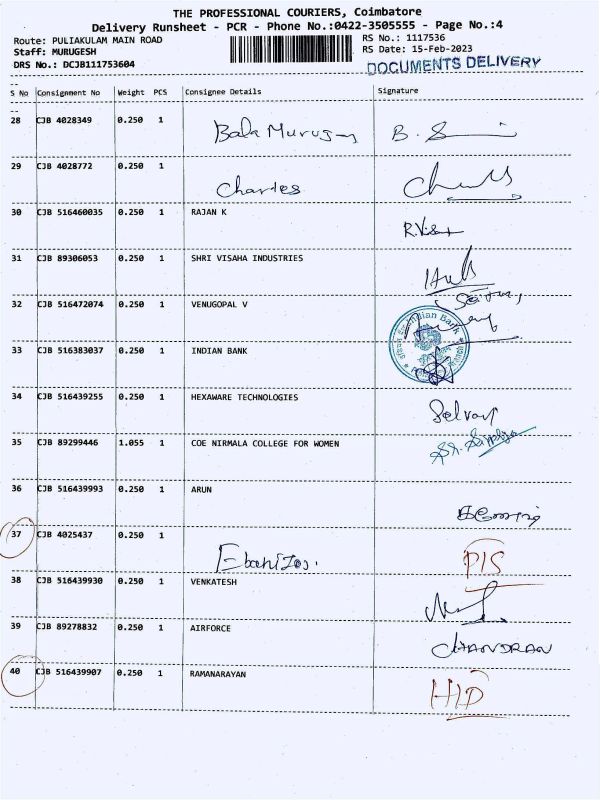 THE PROFESSIONAL COURIERS, Coimbatore
Delivery Runsheet - PCR - Phone No.:0422-3505555 - Page No.:4
Route: PULIAKULAM MAIN ROAD RS No.: 1117536
Staff: MURUGESH RS Date: 15-Feb-2023
DRS No.: DCJB111753604 DOCUMENTS DELIVERY
S No Consignment No Weight PCS Consignee Details Signature
28 CJB 4028349 0.250 1
Bala Murugan B.
29 CJB 4028772 0.250 1
Charles
30 CJB 516460035 0.250 1 RAJAN K
31 CJB 89306053 0.250 1 SHRI VISAHA INDUSTRIES
32 CJB 516472074 0.250 1 VENUGOPAL V
33 CJB 516383037 0.250 1 INDIAN BANK
Indian Bank
34 CJB 516439255 0.250 1 HEXAWARE TECHNOLOGIES
Selvaraj
35 CJB 89299446 1.055 1 COE NIRMALA COLLEGE FOR WOMEN
36 CJB 516439993 0.250 1 ARUN
37 CJB 4025437 0.250 1
PIS
38 CJB 516439930 0.250 1 VENKATESH
39 CJB 89278832 0.250 1 AIRFORCE
CHANDRAN
40 CJB 516439907 0.250 1 RAMANARAYAN
HID